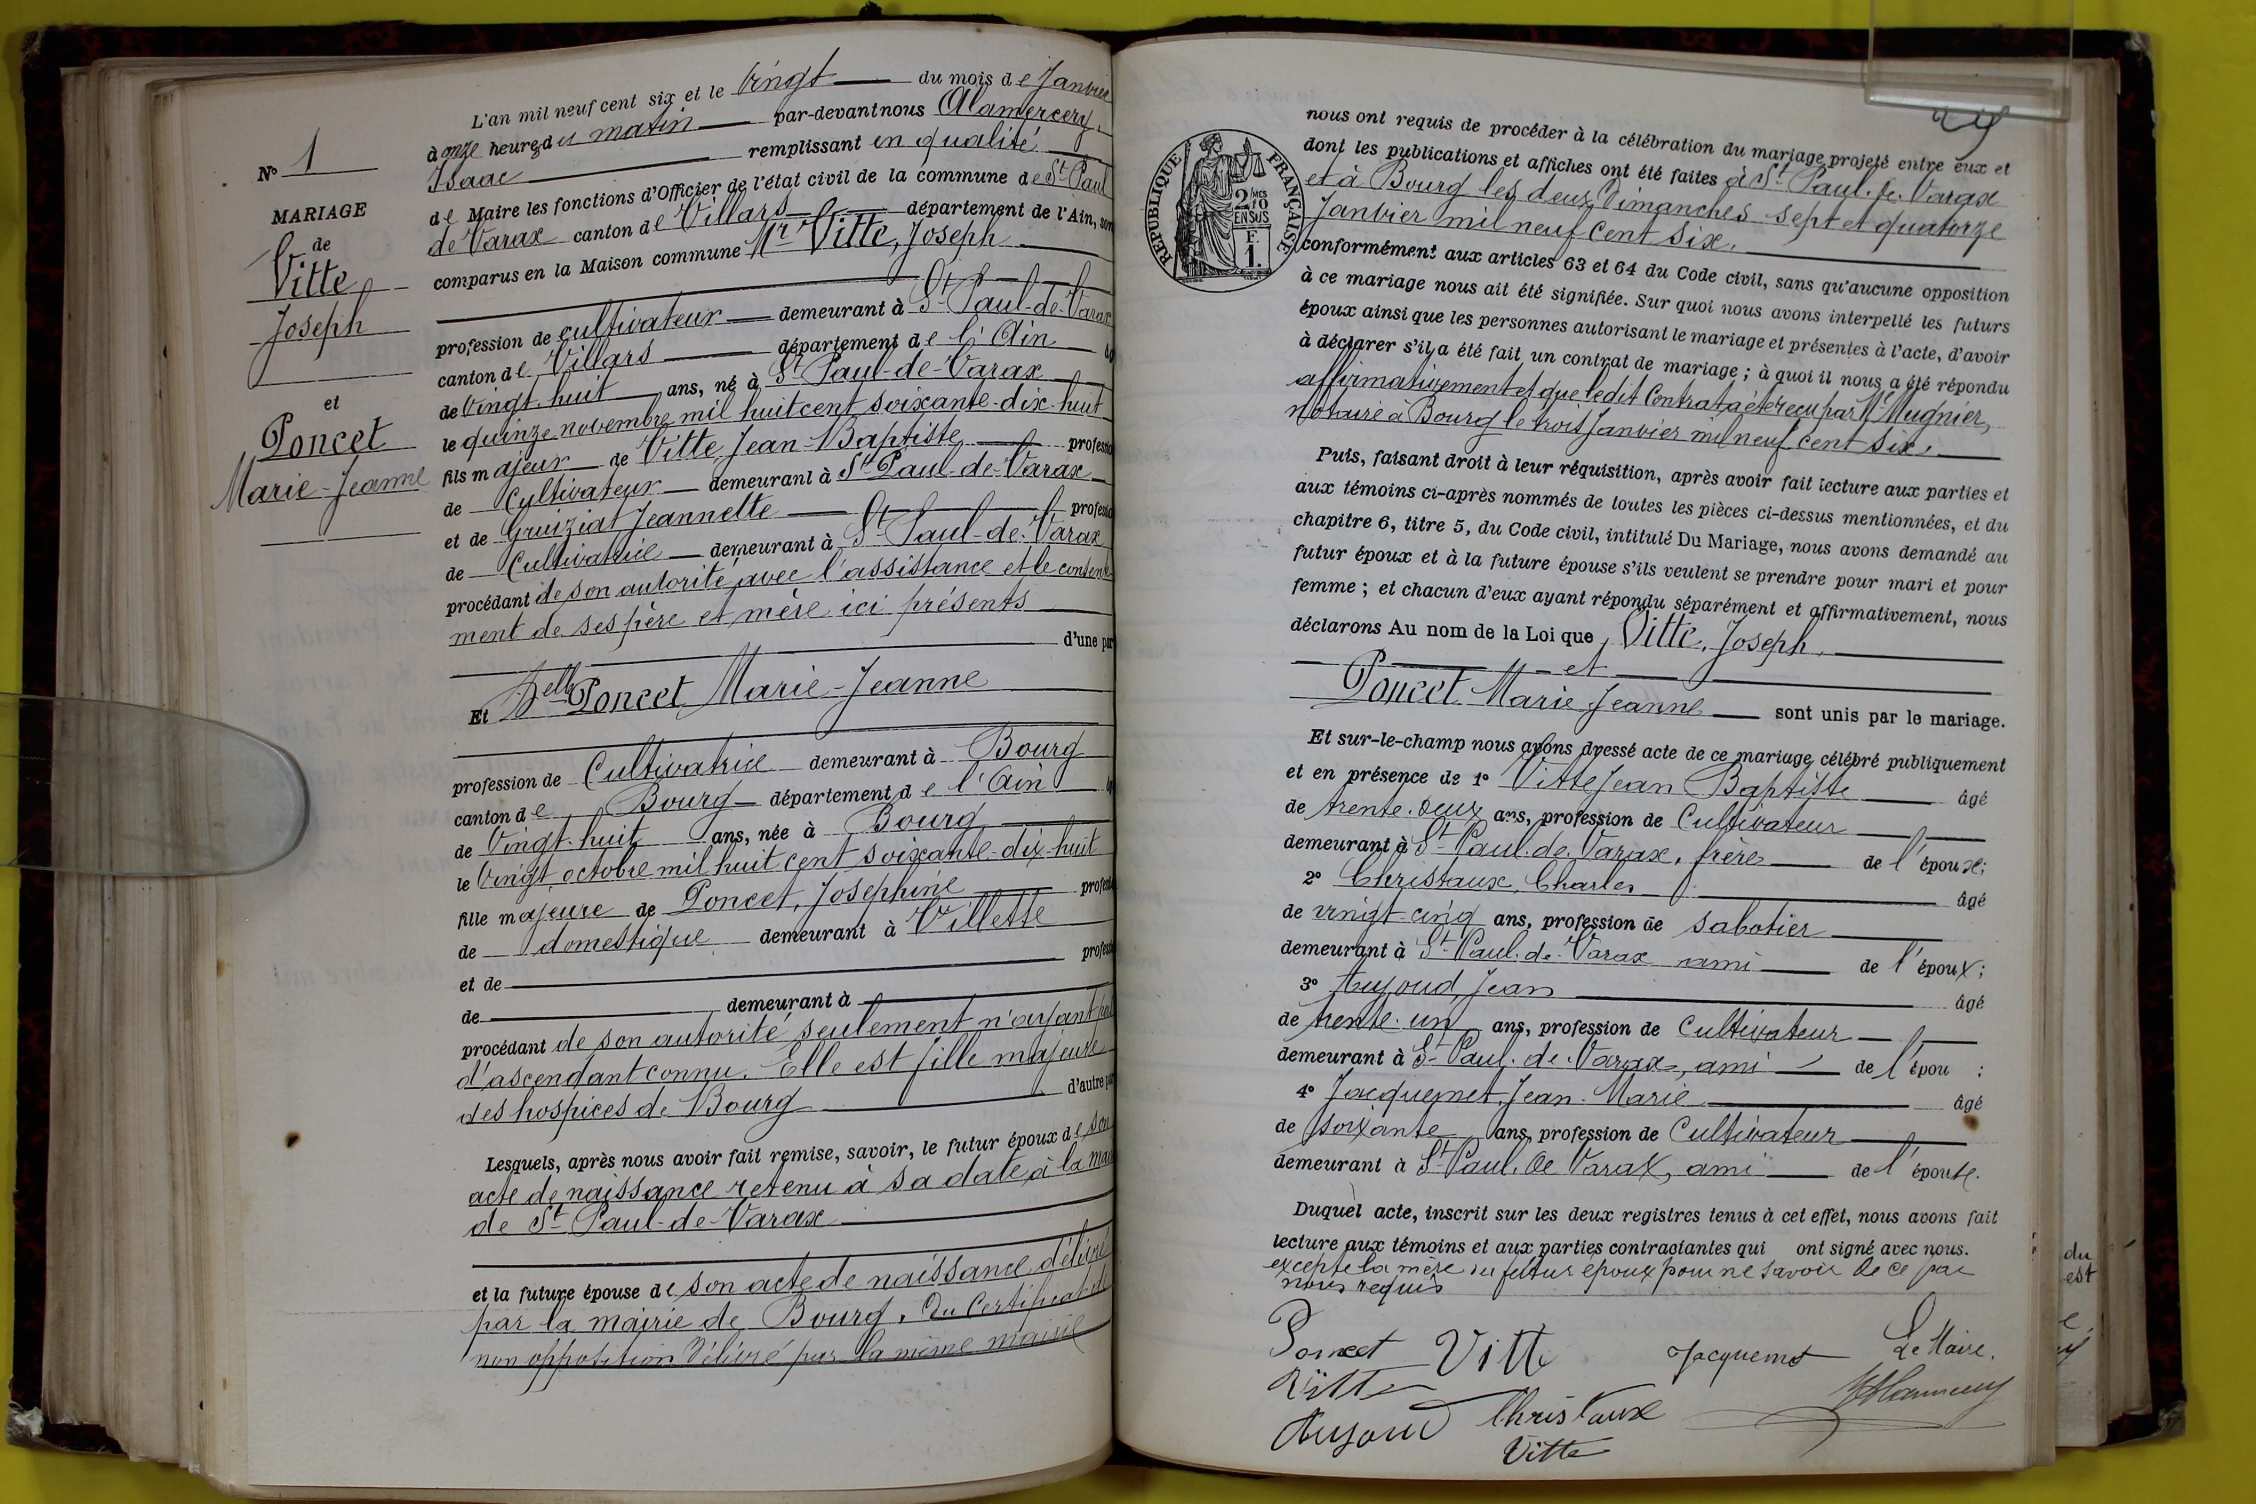 L'an mil neuf cent six et le Vingt du mois de Janvier
à onze heures du matin par-devant nous Alamercery
Isaac remplissant en qualité
de Maire les fonctions d'Officier de l'état civil de la commune de St Paul
de Varax canton de Villars département de l'Ain, son
comparus en la Maison commune Mr Vitte, Joseph
profession de cultivateur demeurant à St Paul-de-Varax
canton de Villars département de l'Ain
de Vingt-huit ans, né à St Paul-de-Varax
le quinze novembre mil huit cent soixante-dix-huit
fils majeur de Vitte, Jean-Baptiste professio
de Cultivateur demeurant à St Paul-de-Varax
et de Gruiziat Jeannette professi
de Cultivatrice demeurant à St Paul-de-Varax
procédant de son autorité avec l'assistance et le consente
ment de ses père et mère ici présents
d'une par
Et Delle Poncet Marie-Jeanne
profession de Cultivatrice demeurant à Bourg
canton de Bourg département de l'Ain
de Vingt-huit ans, née à Bourg
le Vingt octobre mil huit cent soixante-dix-huit
fille majeure de Poncet, Josephine profess
de domestique demeurant à Villette
et de professi
de demeurant à
procédant de son autorité seulement n'ayant pas
d'ascendant connu. Elle est fille majeure
des hospices de Bourg d'autre par
Lesquels, après nous avoir fait remise, savoir, le futur époux de son
acte de naissance retenu à sa date à la mai
de St Paul-de-Varax
et la future épouse de son acte de naissance délivré
par la mairie de Bourg, Du Certificat de
non opposition délivré par la même mairie
No 1
MARIAGE
de
Vitte
Joseph
et
Poncet
Marie-Jeanne
nous ont requis de procéder à la célébration du mariage projeté entre eux et
dont les publications et affiches ont été faites à St Paul de Varax
et à Bourg les deux Dimanches sept et quatorze
Janvier mil neuf cent six.
conformément aux articles 63 et 64 du Code civil, sans qu'aucune opposition
à ce mariage nous ait été signifiée. Sur quoi nous avons interpellé les futurs
époux ainsi que les personnes autorisant le mariage et présentes à l'acte, d'avoir
à déclarer s'il a été fait un contrat de mariage ; à quoi il nous a été répondu
affirmativement et que ledit Contrat a été reçu par Me Mugnier,
notaire à Bourg le trois Janvier mil neuf cent six.
Puis, faisant droit à leur réquisition, après avoir fait lecture aux parties et
aux témoins ci-après nommés de toutes les pièces ci-dessus mentionnées, et du
chapitre 6, titre 5, du Code civil, intitulé Du Mariage, nous avons demandé au
futur époux et à la future épouse s'ils veulent se prendre pour mari et pour
femme ; et chacun d'eux ayant répondu séparément et affirmativement, nous
déclarons Au nom de la Loi que Vitte, Joseph,
et
Poncet Marie Jeanne sont unis par le mariage.
Et sur-le-champ nous avons dressé acte de ce mariage célébré publiquement
et en présence de 1° Vitte Jean Baptiste âgé
de trente-deux ans, profession de Cultivateur
demeurant à St Paul-de-Varax, frère de l'époux;
2° Christaux, Charles âgé
de vingt-cinq ans, profession de sabotier
demeurant à St Paul-de-Varax ami de l'époux;
3° Aujoud, Jean âgé
de trente-un ans, profession de Cultivateur
demeurant à St Paul-de-Varax, ami de l'épou ;
4° Jacquemet, Jean-Marie âgé
de soixante ans, profession de Cultivateur
demeurant à St Paul de Varax, ami de l'épouse.
Duquel acte, inscrit sur les deux registres tenus à cet effet, nous avons fait
lecture aux témoins et aux parties contractantes qui ont signé avec nous.
excepté la mère du futur époux pour ne savoir de ce par
nous requis
Poncet Vitte Jacquemet Le Maire.
Vitte Alamercery
Aujoud Christaux
Vitte
RÉPUBLIQUE FRANÇAISE
2/10
EN SUS
F.
1.
du
est